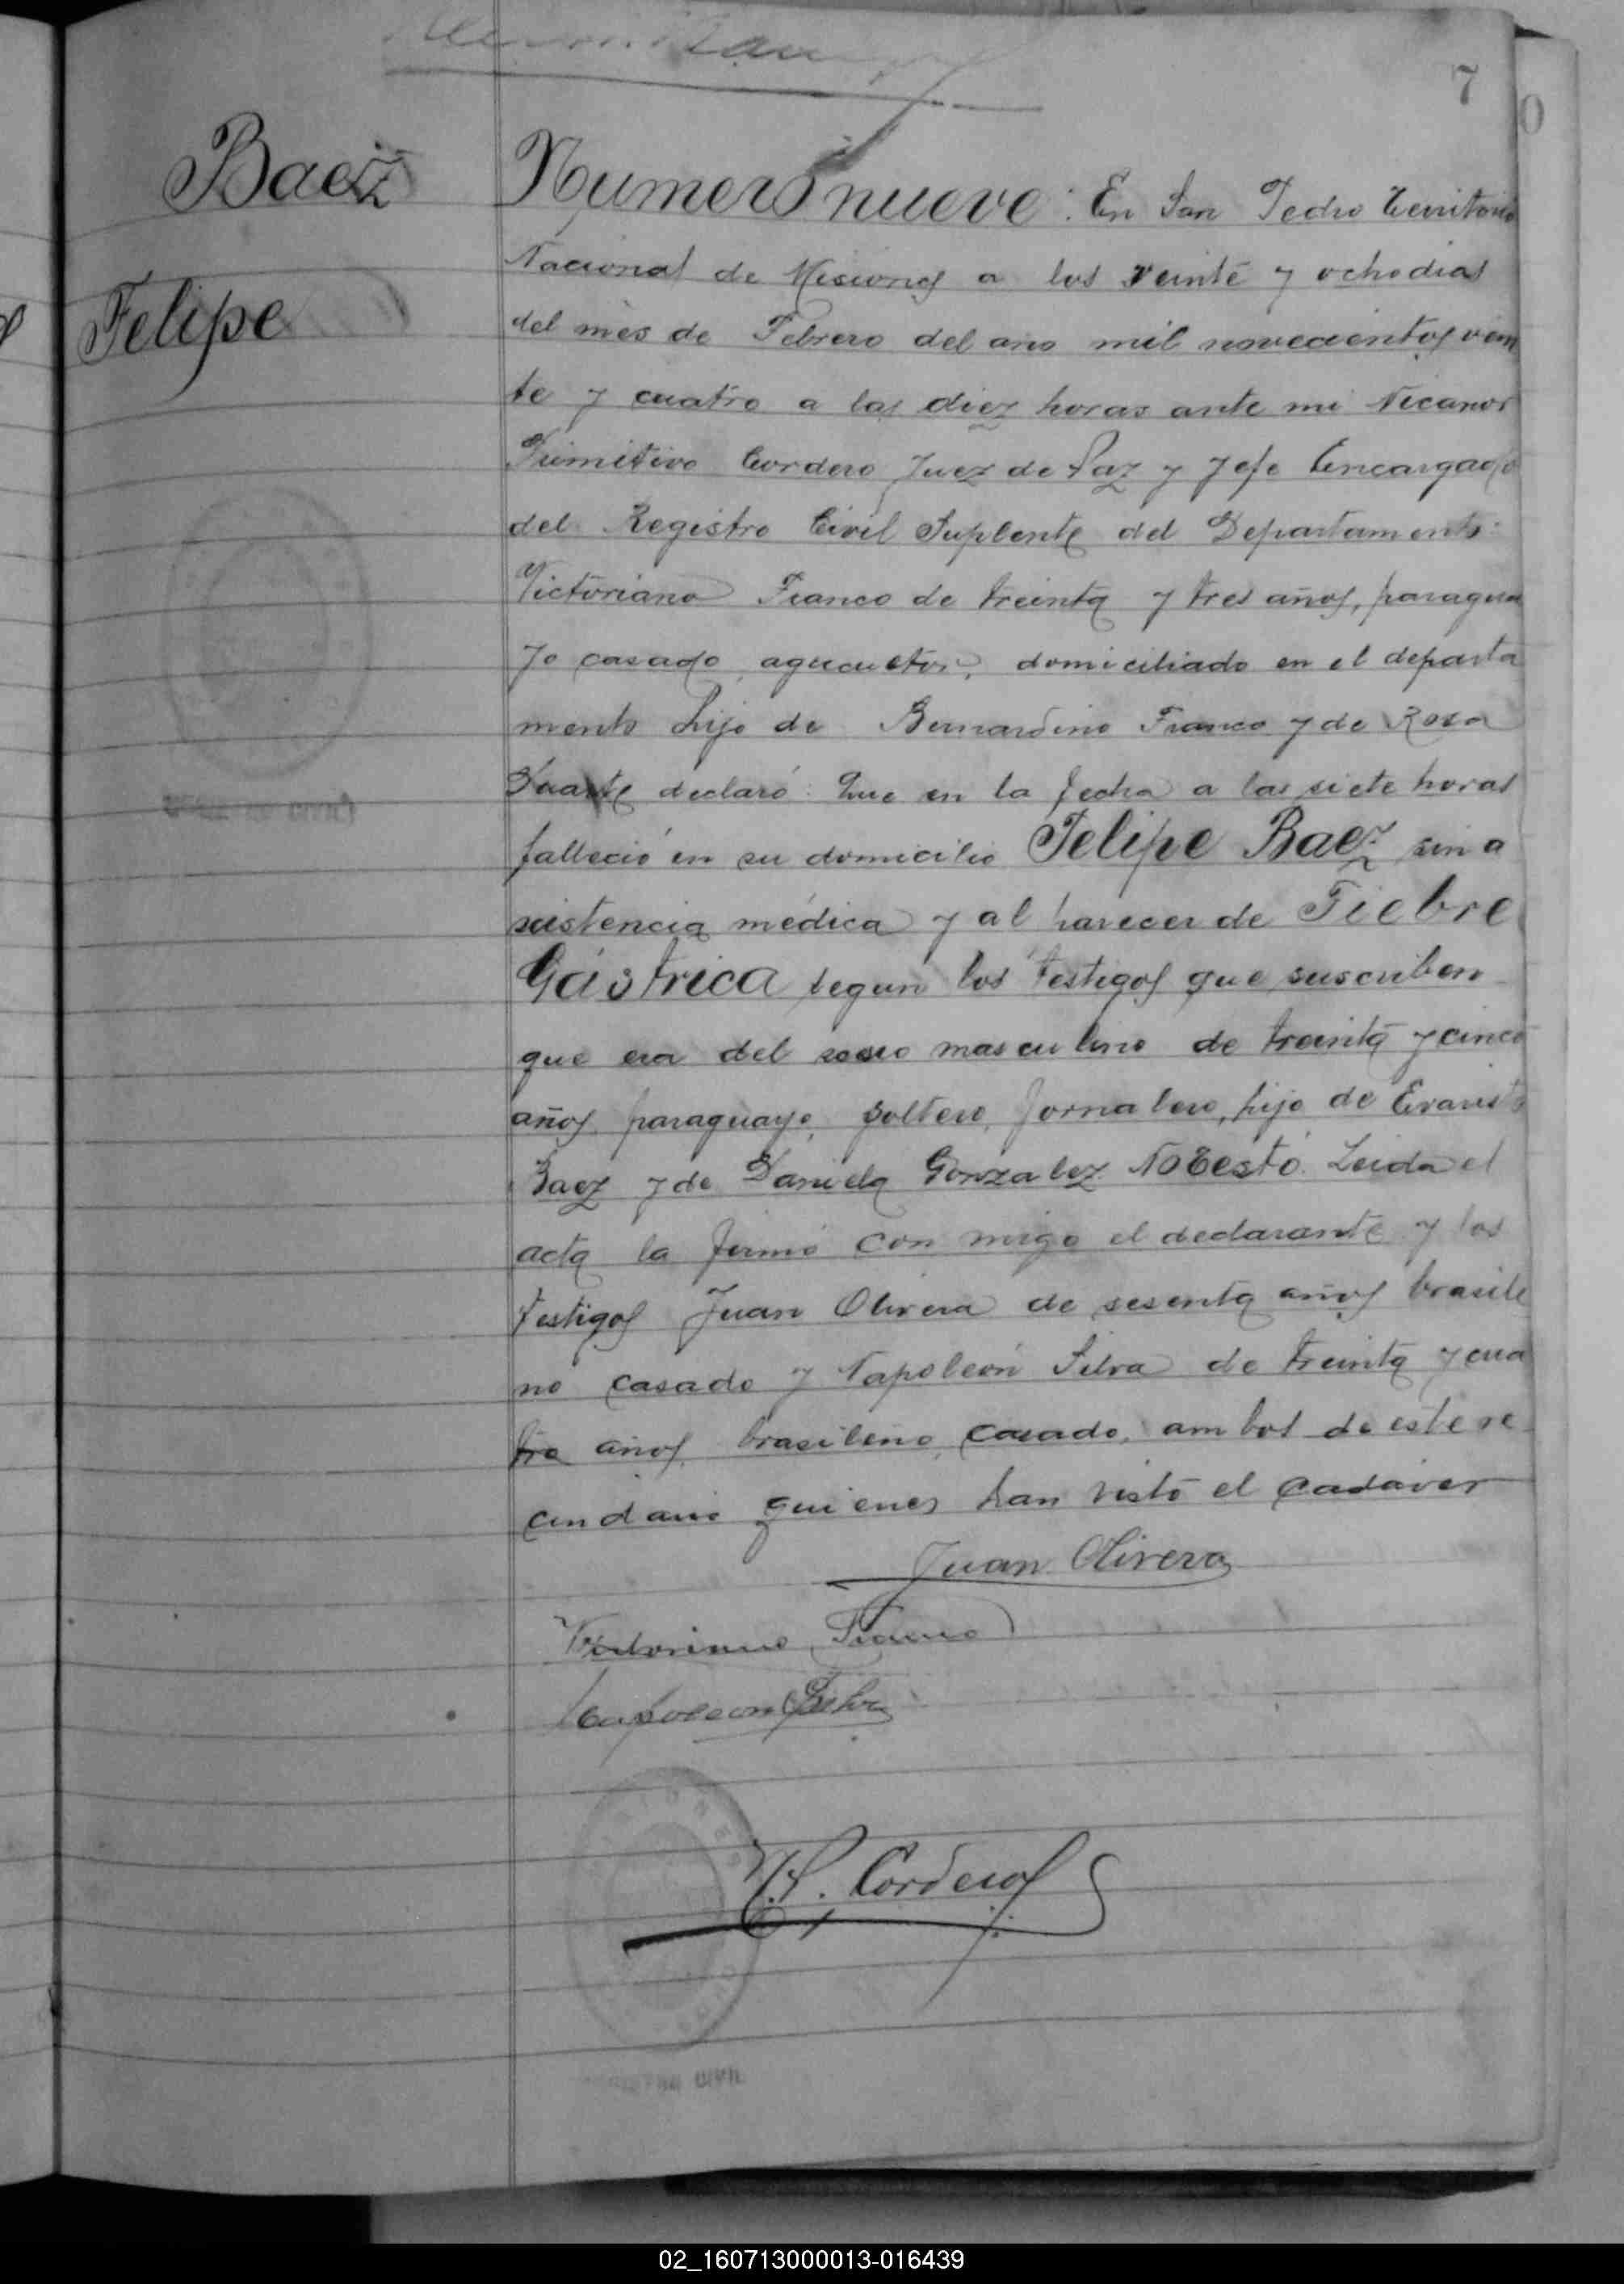 7
0
Baez
Felipe
Número nueve: En San Pedro Territorio
Nacional de Misiones a los veinte y ocho dias
del mes de Febrero del año mil novecientos vein
te y cuatro a las diez horas ante mi Nicanor
Primitivo Cordero Juez de Paz y Jefe Encargado
del Registro Civil Suplente del Departamento:
Victoriano Franco de treinta y tres años, paragua
yo casado, agricultor, domiciliado en el departa
mento hijo de Bernardino Franco y de Rosa
Duarte declaró: Que en la fecha a las siete horas
falleció en su domicilio Felipe Baez sin a
sistencia médica y al parecer de Fiebre
Gástrica segun los testigos que suscriben
que era del sexo masculino de treinta y cinco
años, paraguayo, soltero, jornalero, hijo de Evaristo
Baez y de Daniela Gonzalez. No testó. Leida el
acta la firmó con migo el declarante y los
testigos Juan Olivera de sesenta años brasile
no casado y Napoleón Silva de treinta y cua
tro años, brasileno, casado, ambos de este ve
cindario quienes han visto el cadáver
Juan Olivera
Victoriano Franco
Napoleon Silva
MISIONES
N.P. Cordero
REGISTRO CIVIL
02_160713000013-016439